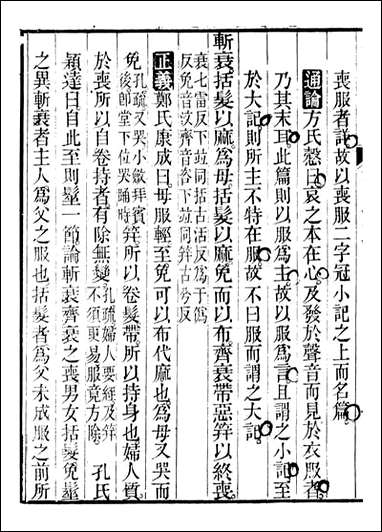 喪服者詳故以喪服二字冠小記之上而名篇
通論方氏慤曰哀之本在心及發於聲音而見於衣服者
乃其末耳此篇則以服爲主故以服爲言且謂之小記至
於大記則所主不特在服故不曰服而謂之大記
斬衰括髮以麻爲母括髮以麻免而以布齊衰帶惡笄以終喪
衰七雷反下竝同括古活反爲于僞
反免音汶齊音咨下竝同笄古兮反
正義鄭氏康成曰母服輕至免可以布代麻也爲母又哭而
免孔疏又哭小斂拜賓
後卽堂下位哭踊時笄所以卷髮帶所以持身也婦人質
於喪所以自卷持者有除無變孔疏婦人要絰及笄
不須更易服竟方除孔氏
穎達曰自此至則髽一節論斬衰齊衰之喪男女括髮免髽
之異斬衰者主人爲父之服也括髮者爲父未成服之前所